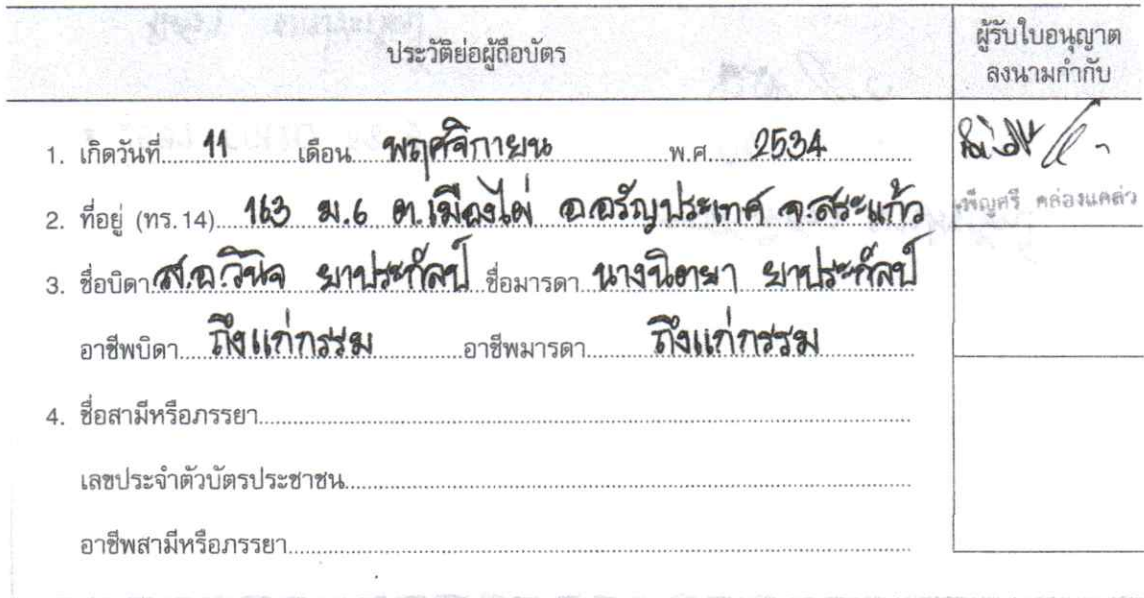 ประวัติย่อผู้ถือบัตร
ผู้รับใบอนุญาต
ลงนามกำกับ
1. เกิดวันที่ 11 เดือน พฤศจิกายน พ.ศ. 2534
2. ที่อยู่ (ทร.14) 163 ม.6 ต.เมืองไผ่ อ.อรัญประเทศ จ.สระแก้ว
เพ็ญศรี คล่องแคล่ว
3. ชื่อบิดา ส.อ.วินิจ ยาประกัลป์ ชื่อมารดา นางนิตยา ยาประกัลป์
อาชีพบิดา ถึงแก่กรรม อาชีพมารดา ถึงแก่กรรม
4. ชื่อสามีหรือภรรยา
เลขประจำตัวบัตรประชาชน
อาชีพสามีหรือภรรยา